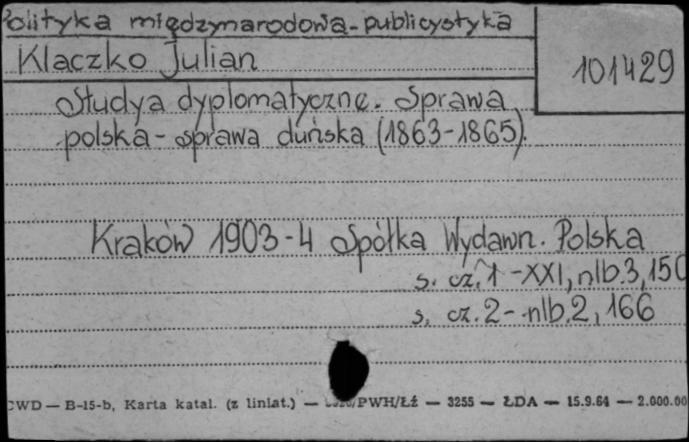 Polityka międzynarodowa - publicystyka
Klaczko Julian
101429
Studya dyplomatyczne. Sprawa
polska - sprawa duńska (1863-1865).
Kraków 1903-4 Spółka Wydawn. Polska
s. cz. 1 - XXI, nlb. 3, 150
s. cz. 2 - nlb. 2, 166
CWD — B-15-b, Karta katal. (z liniat.) — /PWH/Łź — 3255 — ŁDA — 15.9.64 — 2.000.00